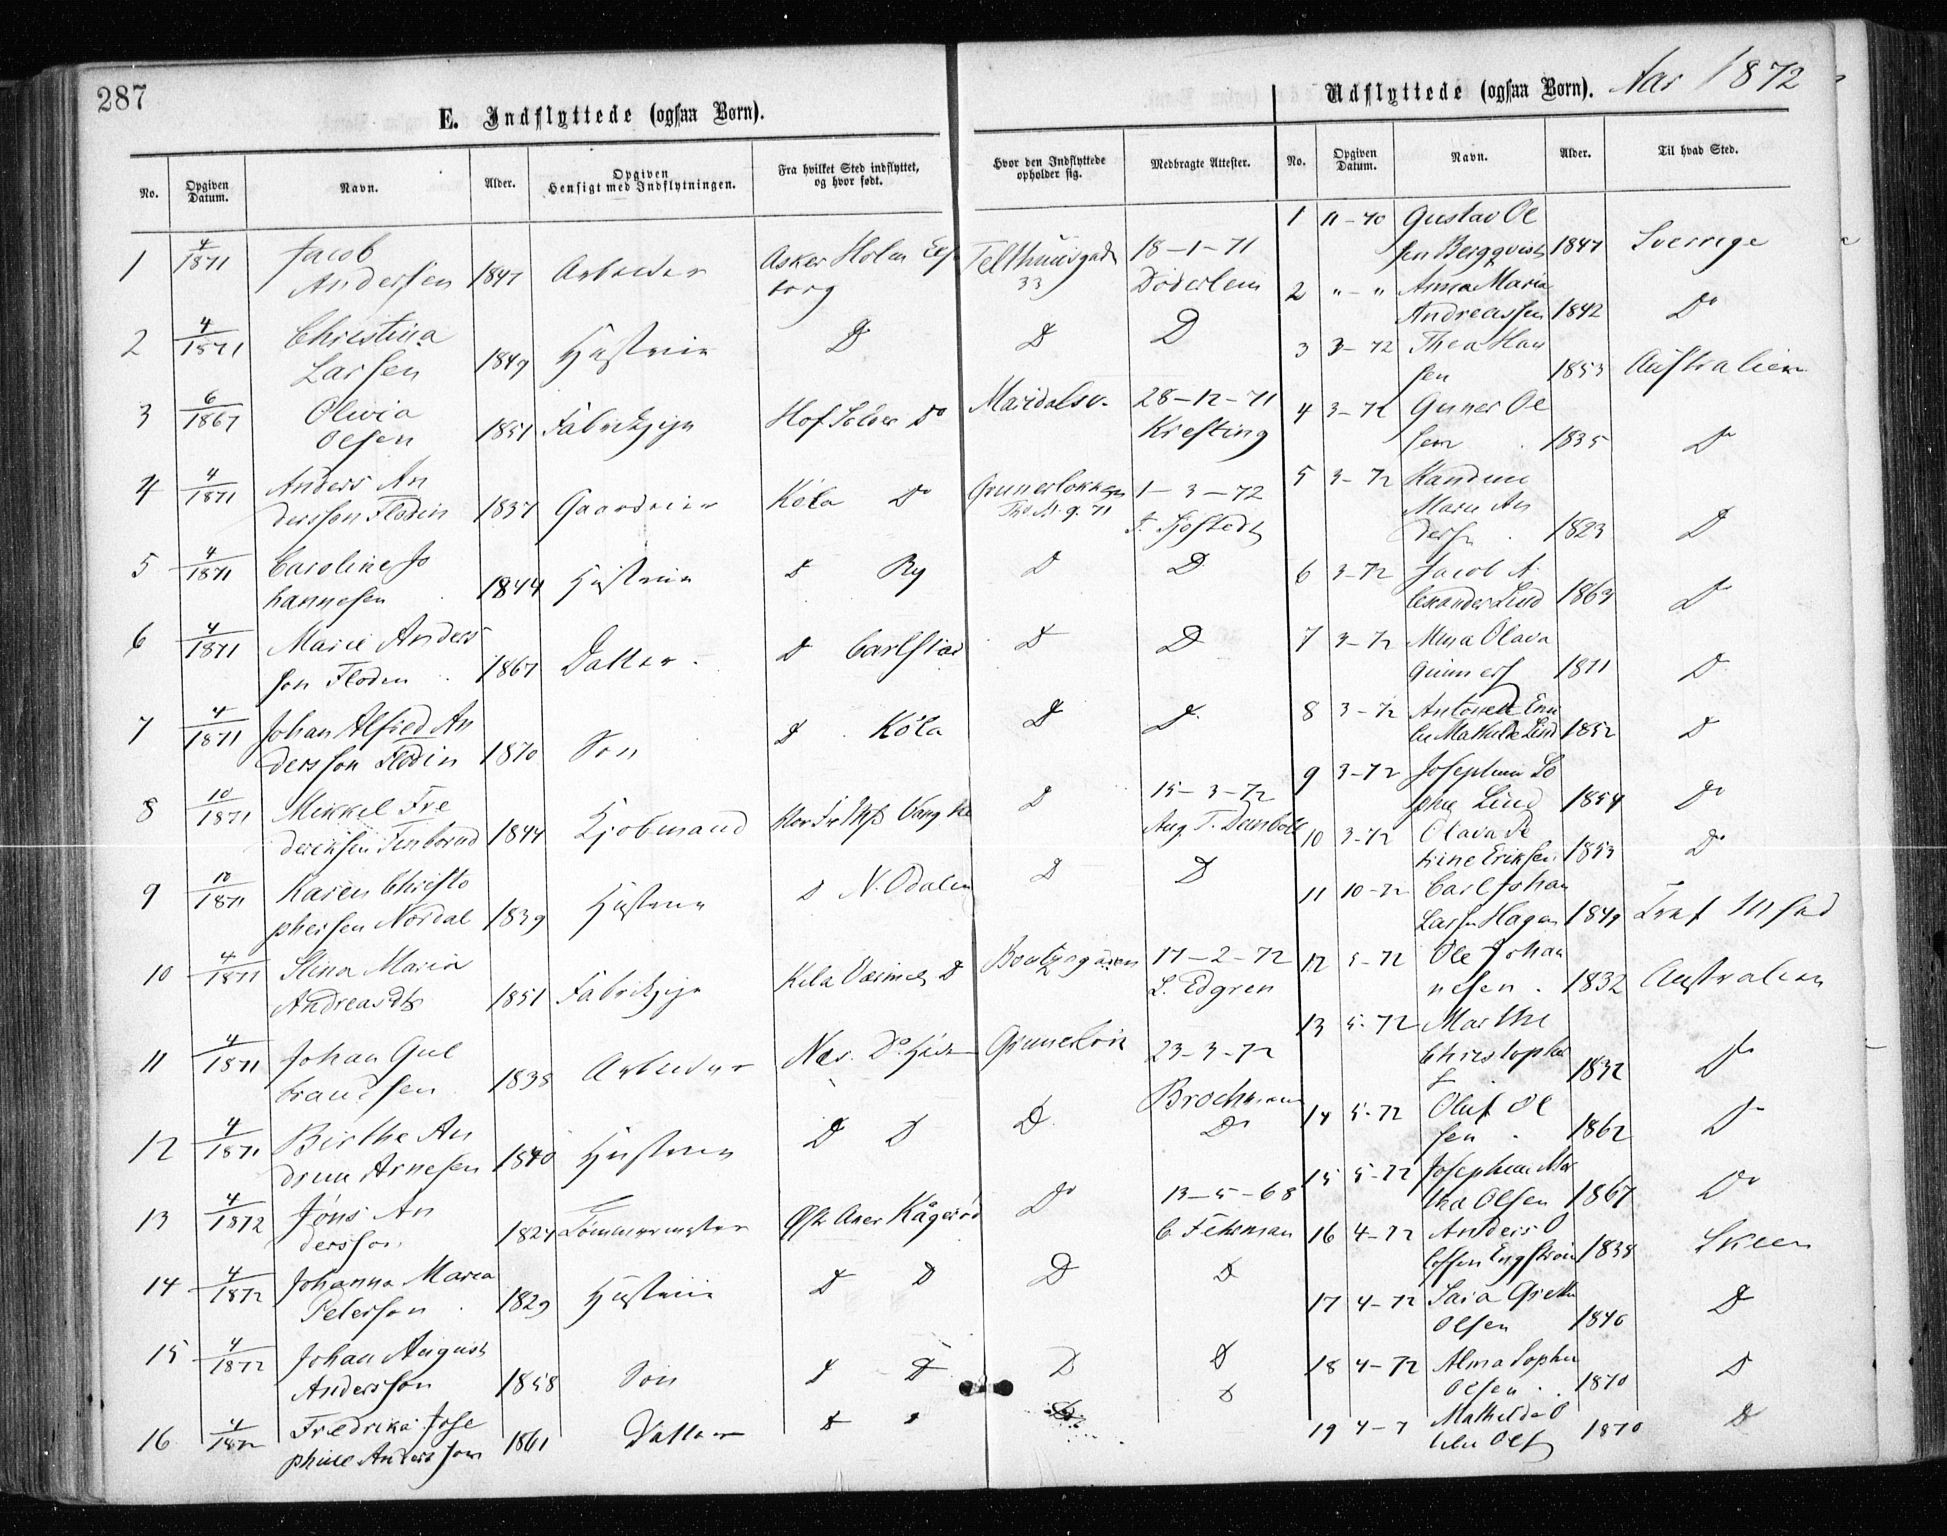 287
E. Indflyttede (ogsaa Børn).
Udflyttede (ogsaa Børn). Aar 1872
No. Opgiven Datum. Navn. Alder. Opgiven Hensigt med Indflytningen. Fra hvilket Sted indflyttet, og hvor født. Hvor den Indflyttede opholder sig. Medbragte Attester.
1 4/1871 Jacob Andersen 1847 Arbeider Asker Holm Telthusgade 33 18-1-71 Döderlein
2 4/1871 Christina Larsen 1849 Hustruе D D D
3 6/1867 Olivia Olsen 1851 Fabrikpige Hof Solør Do Maridalsv. 28-12-71 Krefting
4 4/1871 Anders Andersson Flodin 1837 Gaardeier Köla Do Grunerløkken 1-3-72
5 4/1871 Caroline Johannesen 1844 Hustrue D Ry D D
6 4/1871 Marie Andersson Floden 1867 Datter D Carlstad D D
7 4/1871 Johan Alfred Andersson Flodin 1870 Son D Köla D D
8 10/1871 Mikkel Frederiksen 1844 Kjøbmand D 15-3-72 Aug T. Deinboll
9 10/1871 Karen Christophersen Nordal 1839 Hustrue D N. Odalen D D
10 4/1871 Stina Maria Andreasdtr 1851 Fabrikpige D 17-2-72 L. Edgren
11 4/1871 Johan Gulbrandsen 1838 Arbeider Næs. Do 23-3-72 Brochmann
12 4/1871 Birthe Andrine Arnesen 1840 Hustrue D D D Do
13 4/1872 Jöns Andersson 1824 Tømmermester Kågeröd Do 13-5-68 C. Fehrman
14 4/1872 Johanna Maria Peterson 1829 Hustrue D D D D
15 4/1872 Johan August Andersson 1858 Son D D D D
16 4/1872 Fredrika Josephine Andersson 1861 Datter D D
No. Opgiven Datum. Navn. Alder. Til hvad Sted.
1 11-70 Gustav Olsen Bergqvist 1847 Sverrige
2 "-" Anna Maria Andreassen 1842 Do
3 3-72 Thea Hansen 1853 Australien
4 3-72 Guner Olsen 1835 Do
5 3-72 Marie Anders 1823 D
6 3-72 Jacob Alexander Lind 1863 D
7 3-72 Mina Olava Gunners 1871 D
8 3-72 Mathilde Lind 1852 D
9 3-72 Josephine Sophie Lind 1854 Do
10 3-72 Olava Petrine Eriksen 1853 Do
11 10-72 Carl Johan Larsen Hagen 1849
12 5-72 Ole Johannesen 1832 Australien
13 5-72 Marthe Christophers 1832 Do
14 5-72 Oluf Olsen 1862 Do
15 5-72 Josephine Martha Olsen 1867 Do
16 4-72 Anders Engström 1838 Skeen
17 4-72 Sara Grethe Olsen 1846 D
18 4-72 Alma Sophie Olsen 1870 D
19 4-7 Mathilde Ols 1870 D